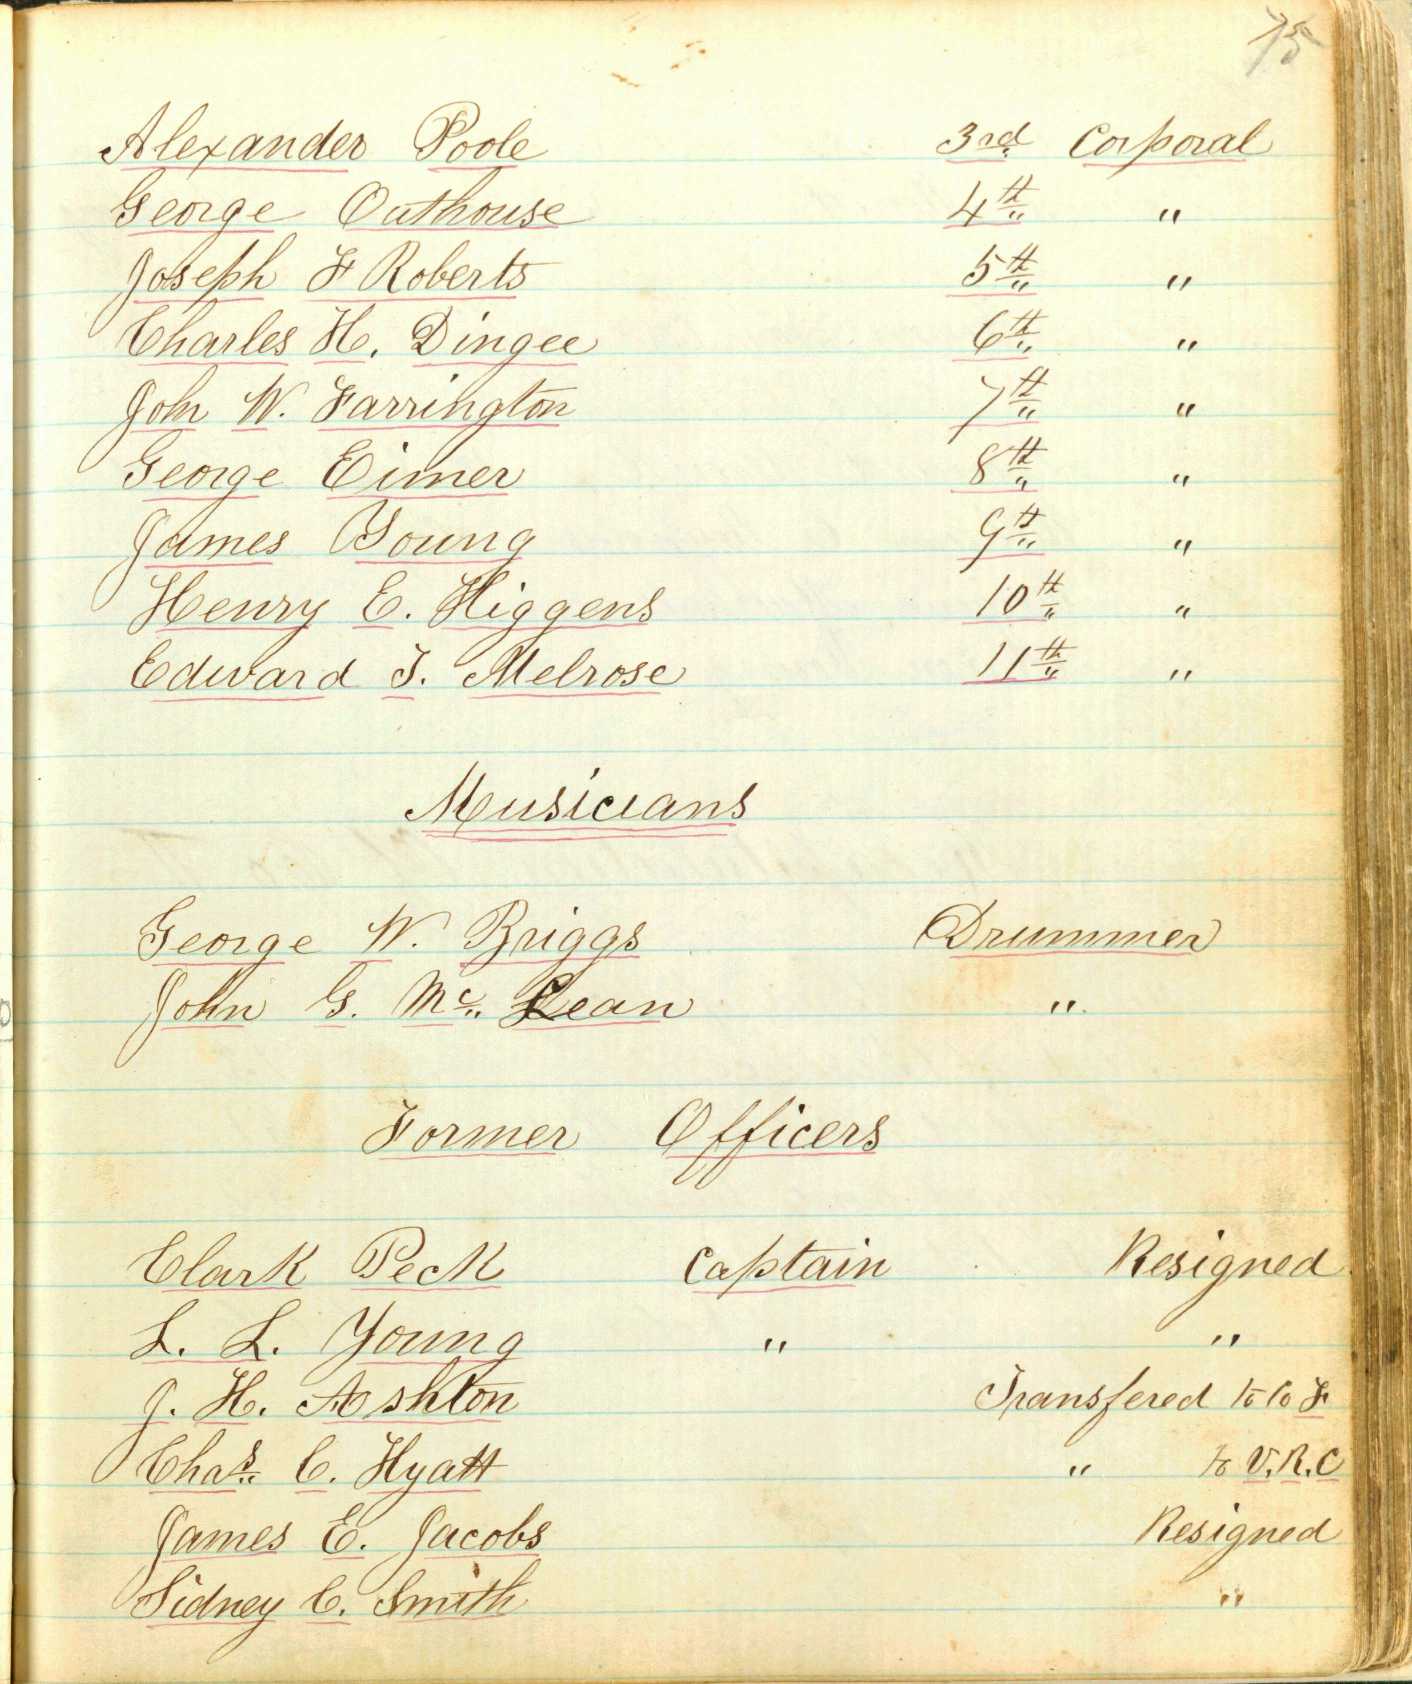 75
Alexander Poole 3rd Corporal
George Outhouse 4th "
Joseph F Roberts 5th "
Charles H. Dingee 6th "
John W. Farrington 7th "
George Eimer 8th "
James Young 9th "
Henry E. Higgens 10th "
Edward T. Melrose 11th "
Musicians
George W. Briggs Drummer
John G. Mc Lean "
Former Officers
Clark Peck Captain Resigned
L. L. Young " "
J. H. Ashton Transfered to Co F
Chas C. Hyatt " to V.R.C
James E. Jacobs Resigned
Sidney C. Smith "